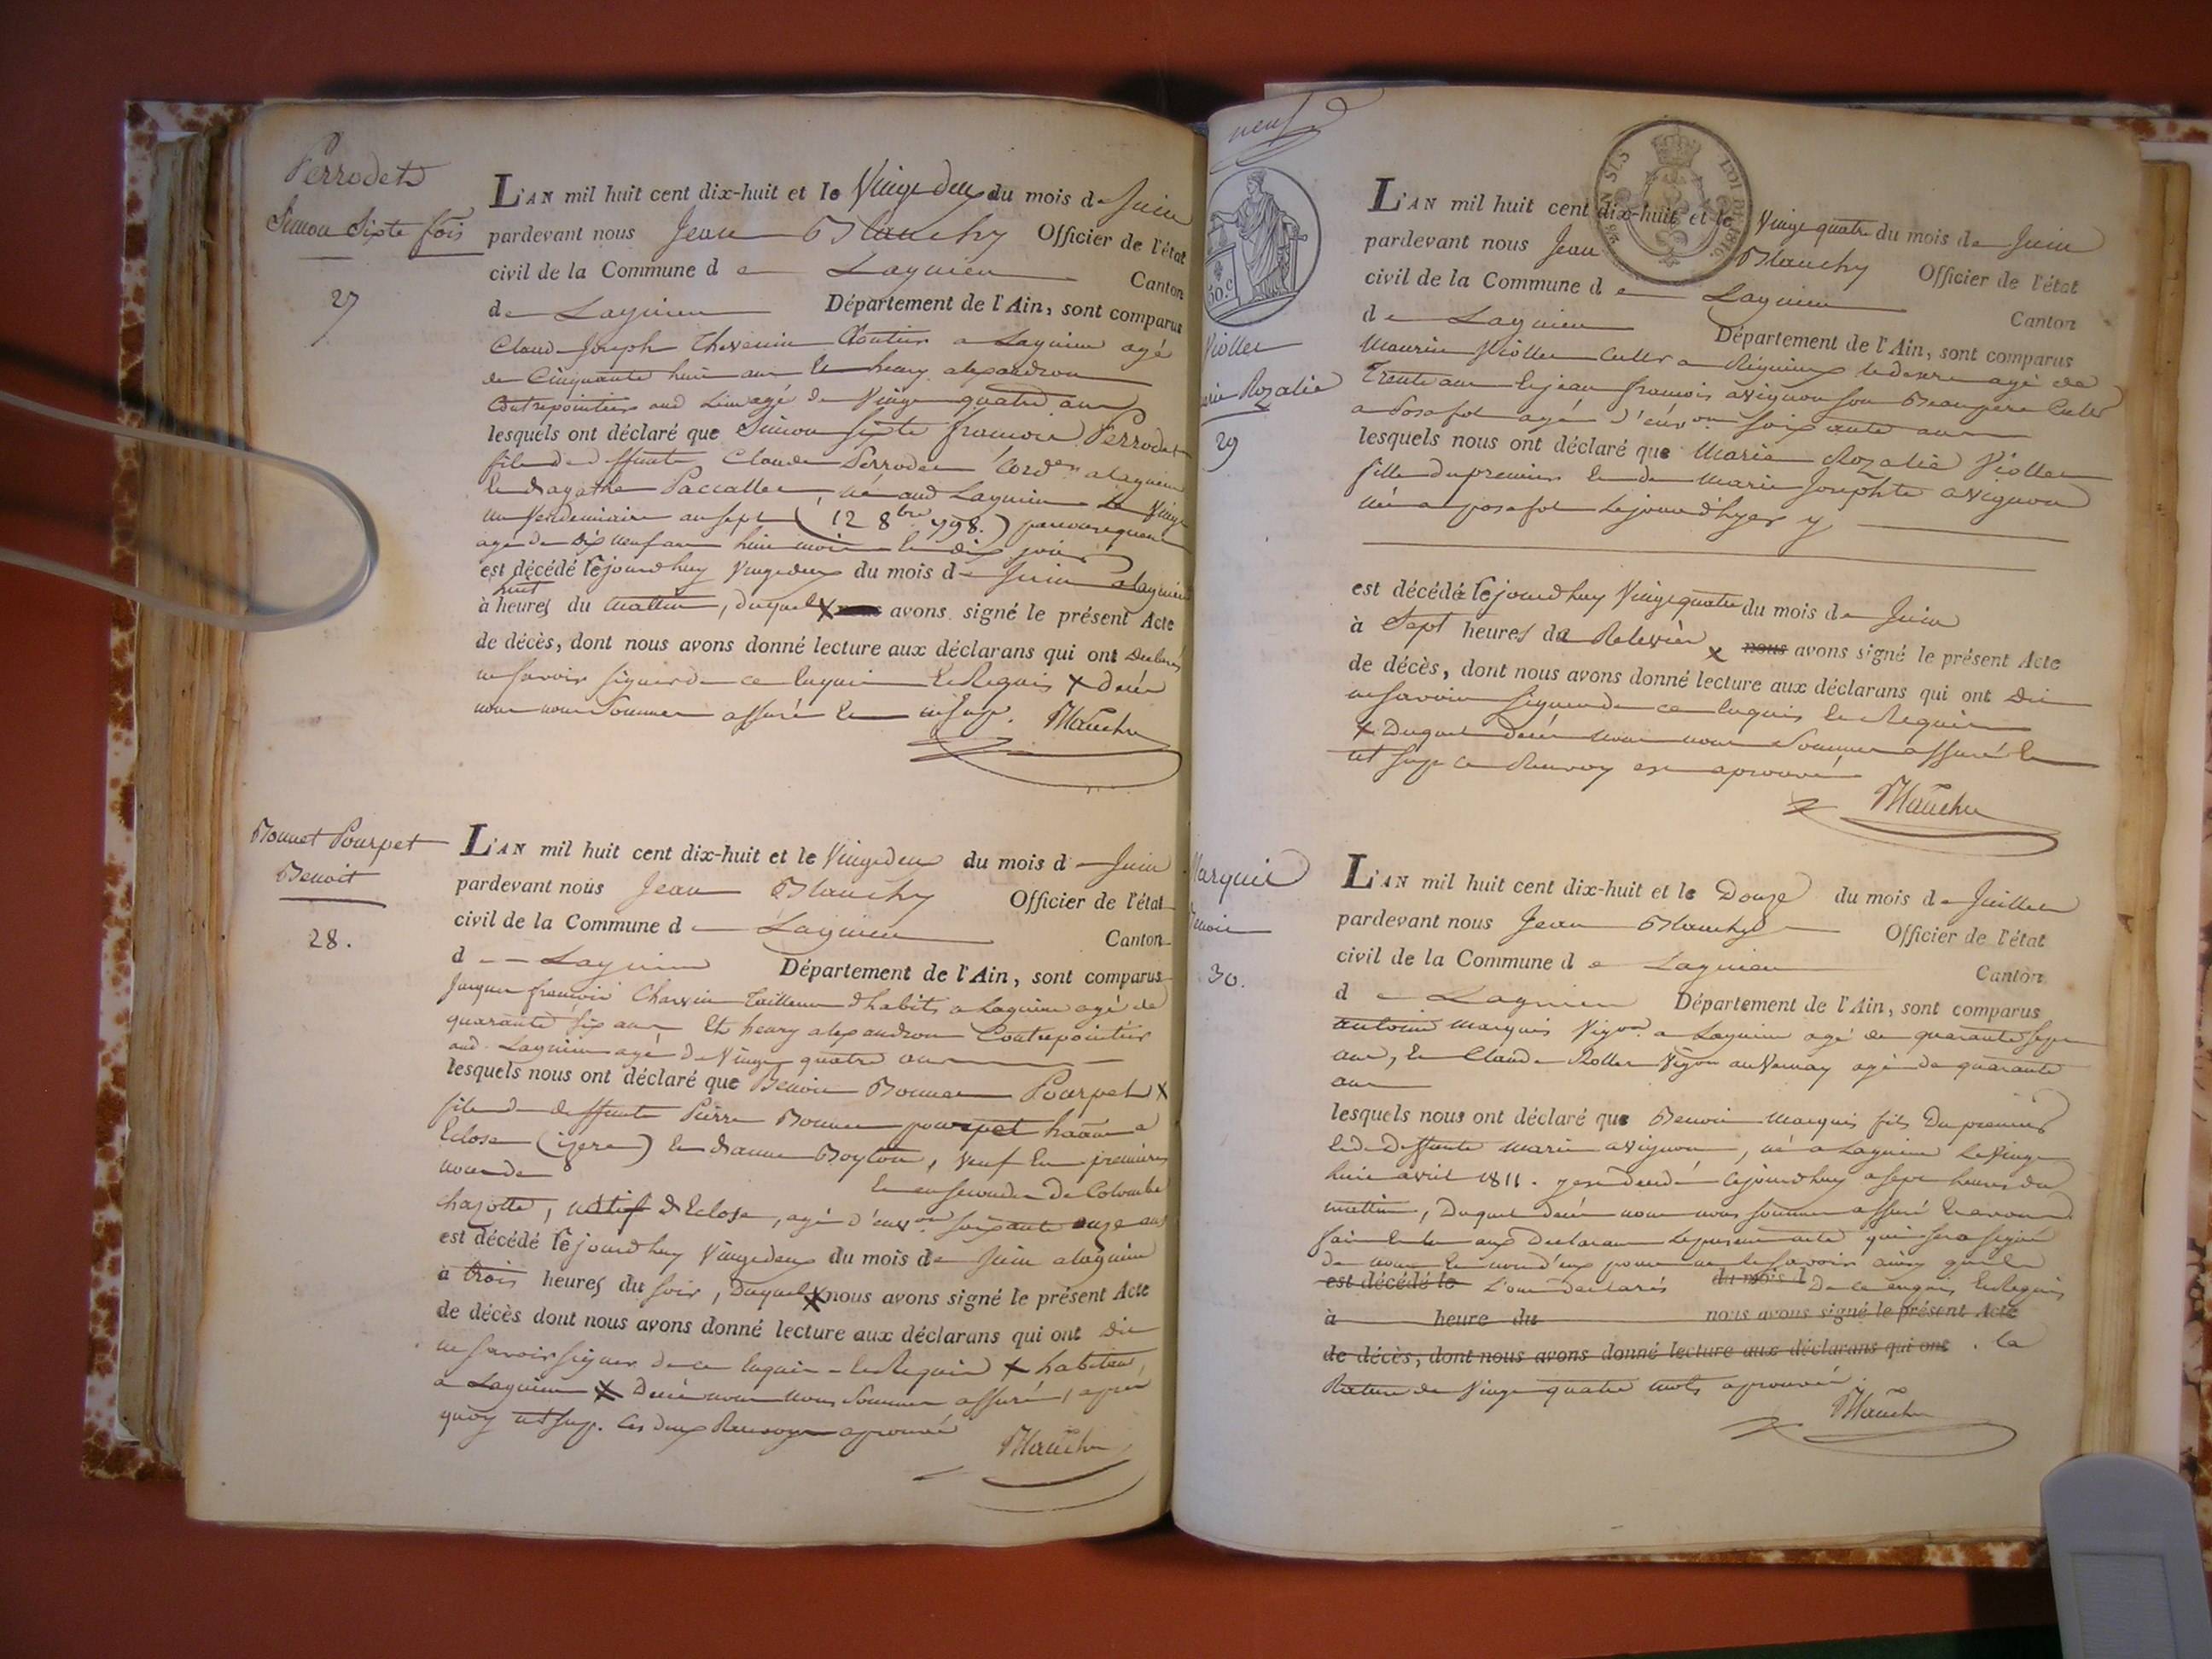 Perrodet
Simon Sixte fois
27
L'AN mil huit cent dix-huit et le Vingt deux du mois de Juin
pardevant nous Jean Blanchy Officier de l'état
civil de la Commune de Lagnieu Canton
de Lagnieu Département de l'Ain, sont comparus
Claude Joseph Thevenin agé
de Cinquante huit ans et henry alexandron
Contrepointier aud Lieu agé de Vingt quatre ans
lesquels ont déclaré que Simon Sixte francois Perrodet
fils de deffunts Claude Perrodet Cordier a lagnieu
et d'agathe Paccallet, né aud Lagnieu Le Vingt
un Vendemiaire an sept (12 8bre 798.) par consequent
agé de Dix neuf ans huit mois et dix jours
est décédé cejourdhuy Vingt deux du mois de Juin a lagnieu
huit
à heures du mattin, duquel X nous avons signé le présent Acte
de décès, dont nous avons donné lecture aux déclarans qui ont Declarés
ne savoir signer de ce Enquis et Requis X decés
nous nous sommes assuré et ut sup. Blanchy
Bonnet Pourpet
Benoit
28.
L'AN mil huit cent dix-huit et le Vingt deux du mois d Juin
pardevant nous Jean Blanchy Officier de l'état
civil de la Commune d e Lagnieu Canton
d Lagnieu Département de l'Ain, sont comparus
Jacques francois Charvin Tailleur d'habits a Lagnieu agé de
quarante six ans Et henry alexandron Contrepointier
aud. Lagnieu agé de Vingt quatre ans
lesquels nous ont déclaré que Benoit Bonnet Pourpet X
fils de deffunts Pierre Bonnet pourpet a
Eclose (izere) et d'anne Boyton, Veuf En premières
noces de et en secondes de Colombe
chazotte, natif d'Eclose, agé d'envon soixante onze ans
est décédé cejourdhuy Vingt deux du mois de Juin a lagnieu
à trois heures du soir, Duquel X nous avons signé le présent Acte
de décès dont nous avons donné lecture aux déclarans qui ont Dit
ne savoir signer de ce Enquis et Requis X habitant
a Lagnieu X Decés nous nous sommes assuré, aprés
quoy ut sup. Ces deux Renvoys aprouvés
Blanchy
neuf
50.c
LOI DE 1816.
Viollet
marie Rozalie
29
L'AN mil huit cent dix-huit et le Vingt quatre du mois de Juin
pardevant nous Jean Blanchy Officier de l'état
civil de la Commune d e Lagnieu Canton
de Lagnieu Département de l'Ain, sont comparus
Maurice Viollet Cultr a agé de
Trente ans et jean francois avignon son Beaupere Cultr
a Posafol agé d'envon soixante ans
lesquels nous ont déclaré que Marie Rozalie Viollet
fille du premier et de marie Josephte avignon
née a posafol le jour d'hyer y
est décédée cejourdhuy Vingt quatre du mois de Juin
à Sept heures de Relevée X nous avons signé le présent Acte
de décès, dont nous avons donné lecture aux déclarans qui ont Dit
ne savoir signer de ce Enquis et Requis
X Duquel decés nous nous sommes assuré et
ut sup. ce Renvoy est aprouvé
Blanchy
Marquis
Benoit
30.
L'AN mil huit cent dix-huit et le Douze du mois de Juillet
pardevant nous Jean Blanchy Officier de l'état
civil de la Commune d e Lagnieu Canton
d e Lagnieu Département de l'Ain, sont comparus
antoine Marquis Vigon a Lagnieu agé de quarante sept
ans, et Claude Rollet Vigon au Vernay agé de quarante
ans
lesquels nous ont déclaré que Benoit Marquis fils Du premier
et de Deffunte Marie avignon, né a Lagnieu Le Vingt
huit avril 1811. y est decedé cejourdhuy a sept heures du
mattin, Duquel decés nous nous sommes assuré et avons
fait lecture aux Declarans le present acte qui sera signé
de nous et non d'eux pour ne le savoir ainsy qu'ils
est décédé le L'ont declarés du mois d De ce enquis et Requis
à heure du nous avons signé le présent Acte
de décès, dont nous avons donné lecture aux déclarans qui ont . la
Rature de Vingt quatre mots aprouvée.
Blanchy